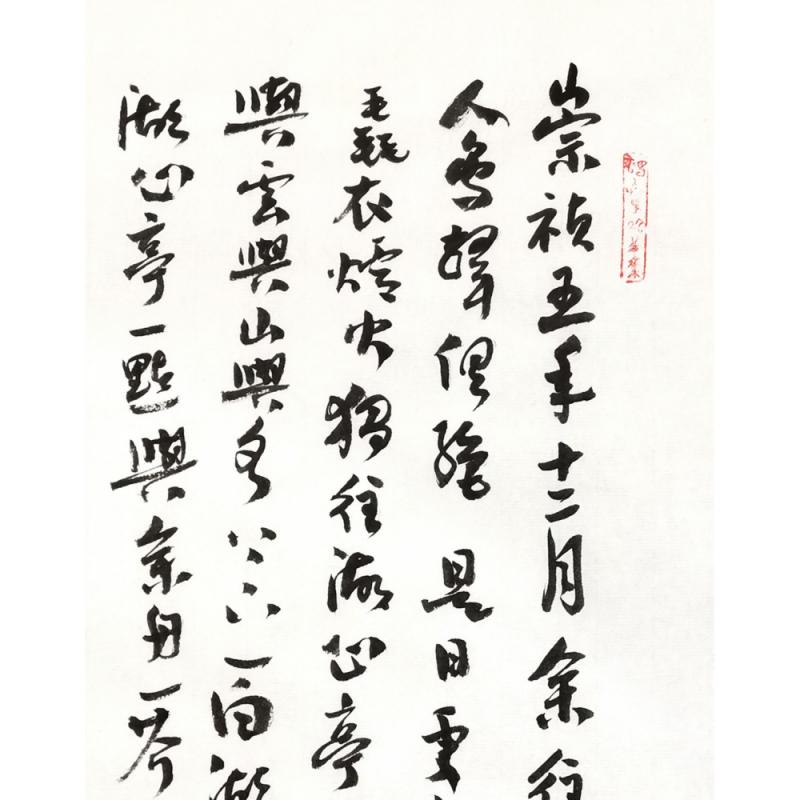 崇禎五年十二月余住
人鳥聲俱絕是日更
毳衣爐火獨往湖心亭
與雲與山與水上下一白湖
湖心亭一點與余舟一芥